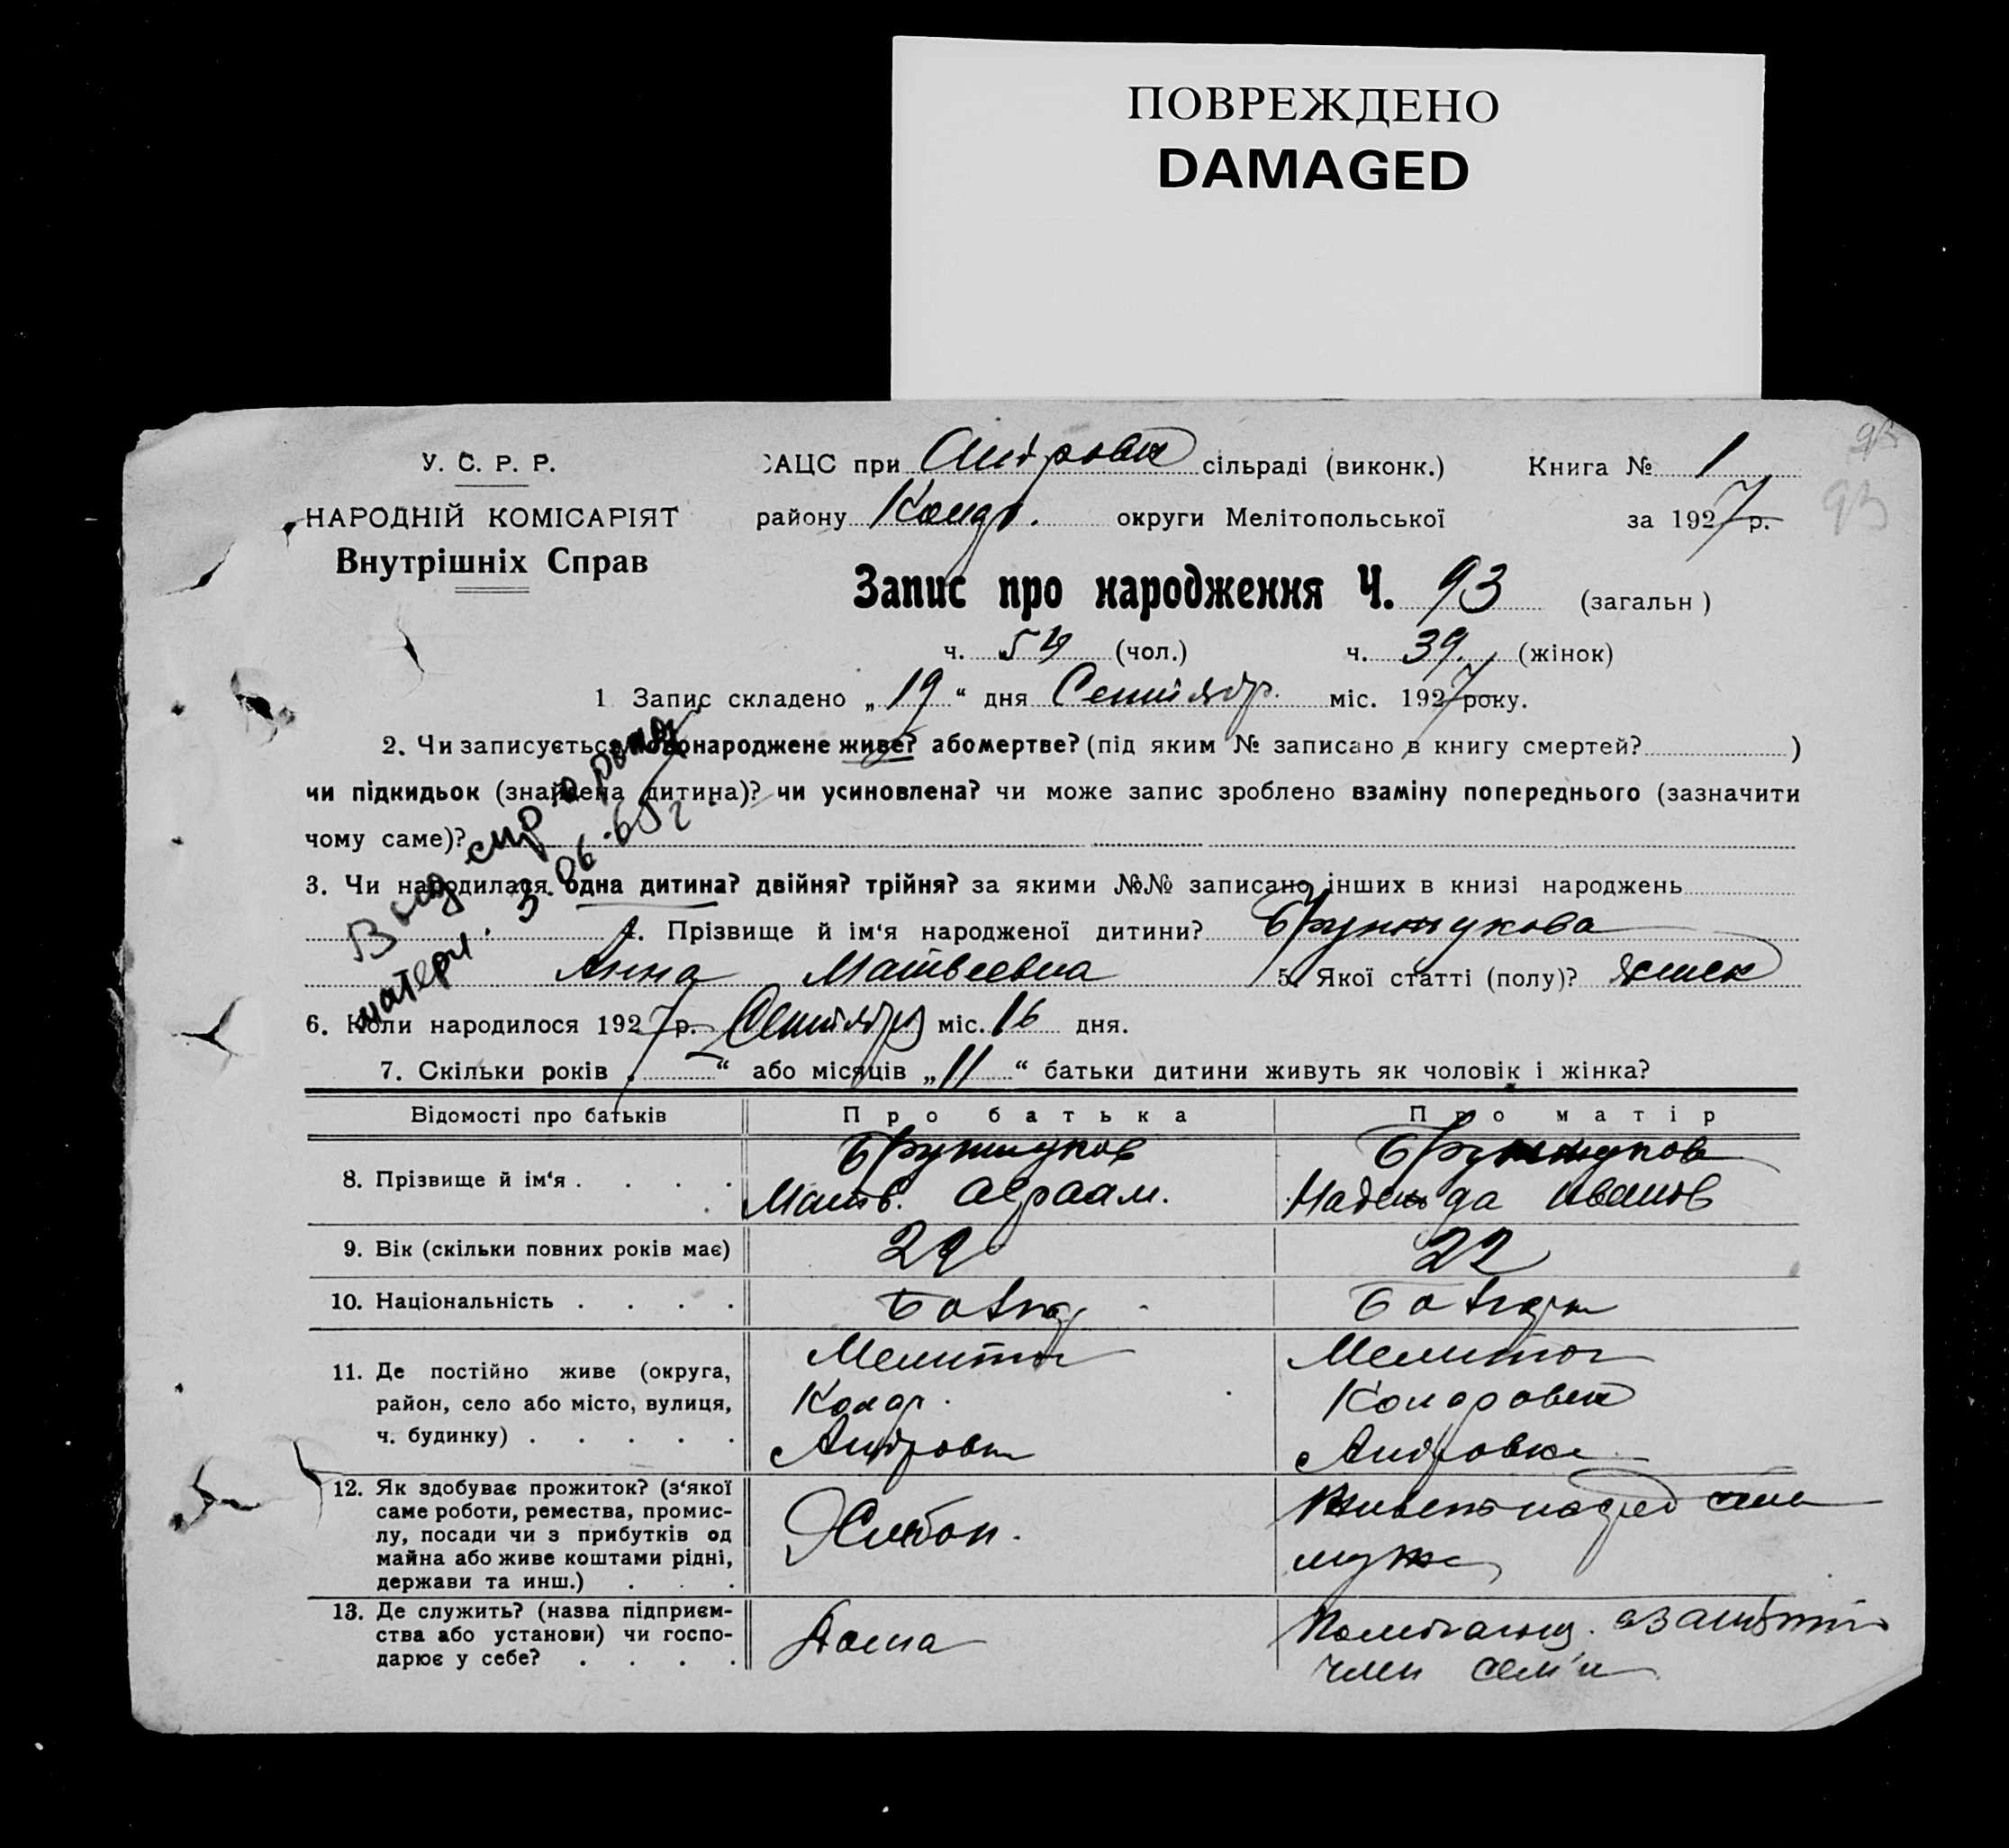 ПОВРЕЖДЕНО
DAMAGED
У. С. Р. Р.
НАРОДНІЙ КОМІСАРІЯТ
Внутрішніх Справ
93
93
АЦС при Андровк сільраді (виконк.) Книга № 1
району Кондр. округи Мелітопольської за 1927 р.
Запис про народження Ч. 93 (загальн)
ч. 54 (чол.) ч. 39. (жінок)
1 Запис складено „19“ дня Сентябр. міс. 1927 року.
2. Чи записується новонароджене живе? або мертве? (під яким № записано в книгу смертей? )
чи підкидьок (знайдена дитина)? чи усиновлена? чи може запис зроблено взаміну попереднього (зазначити
чому саме)?
3. Чи народилася одна дитина? двійня? трійня? за якими №№ записано інших в книзі народжень
4. Прізвище й ім‘я народженої дитини?
Анна Матвеевна 5. Якої статті (полу)? женск
6. Коли народилося 1927 р. Сентябр міс. 16 дня.
7. Скільки років „ “ або місяців „11“ батьки дитини живуть як чоловік і жінка?
Выд спр о рожд
матери. 3.06.65г.
Відомості про батьків Про батька Про матір
8. Прізвище й ім‘я
Матв. Авраам. Надежда Иванов
9. Вік (скільки повних років має) 29 22
10. Національність Болгар
11. Де постійно живе (округа,
район, село або місто, вулиця,
ч. будинку)
Мелитоп Мелитоп
Кондр. Кондровск
Андровк Андровка
12. Як здобуває прожиток? (з‘якої
саме роботи, ремества, промис-
лу, посади чи з прибутків од
майна або живе коштами рідні,
держави та инш.)
Хлебоп.
мужа
13. Де служить? (назва підприєм-
ства або установи) чи госпо-
дарює у себе?
Дома
член семьи